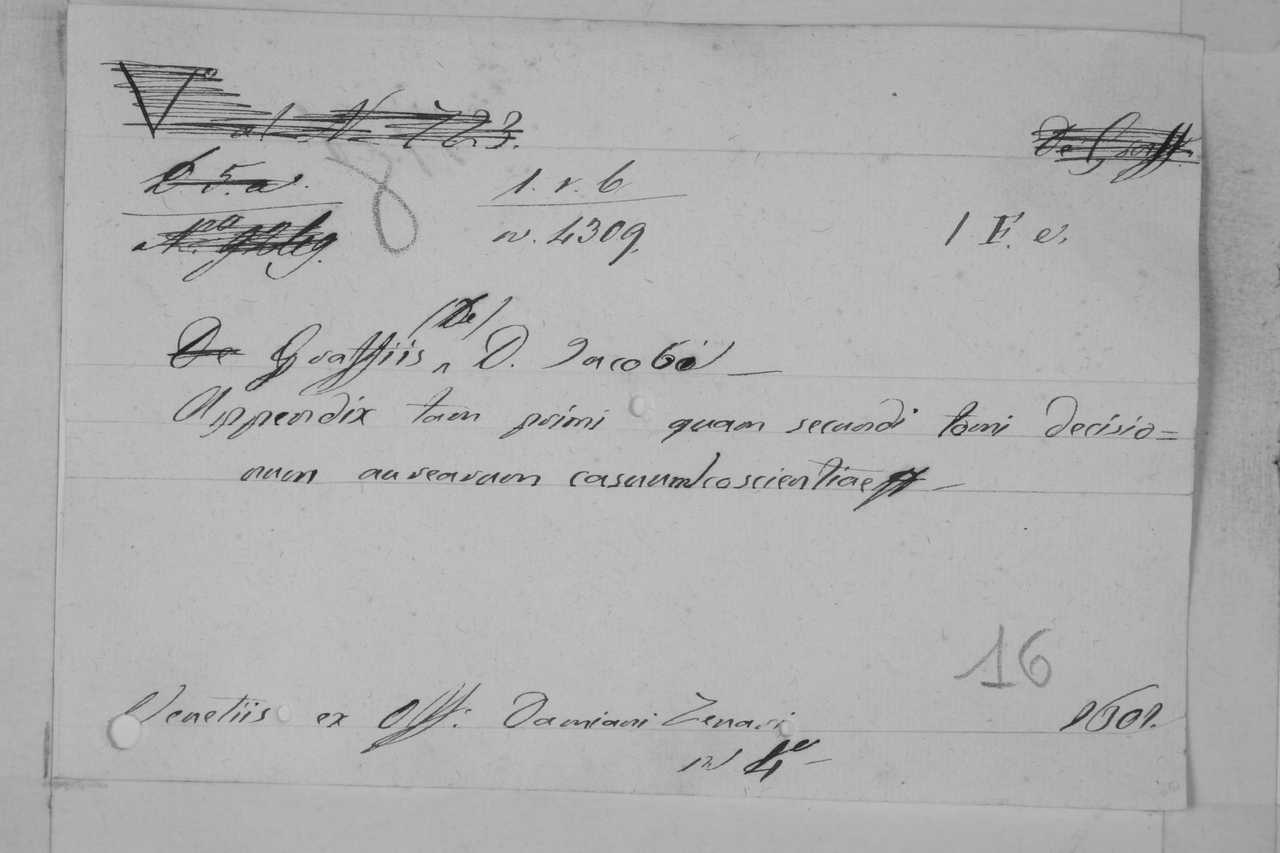 al. N 723.
De Graff.
b 5. a.
1. r. b
n. 4309.
1 F. e.
De Graffiis (De) D. Jacobi
Appendix tam primi quam secundi tomi decisio=
num aurearum casuum coscientiae
16
Venetiis ex Off. Damiani Zenari 1601.
in 4º